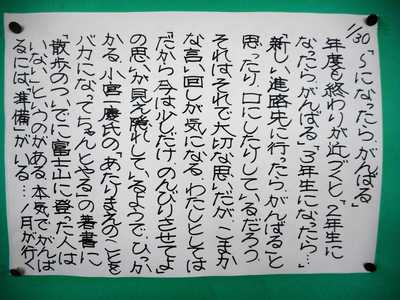 1/30 「〜になったら、がんばる」
年度も終わりが近づくと、「2年生に
なったら、がんばる」「3年生になったら…」
「新しい進路先に行ったら、がんばる」と
思ったり、口にしたりしているだろう。
それはそれで大切な思いだが、こまか
な言い回しが気になる。わたしとしては
だから、今は少しだけ、のんびりさせてよ
の思いが見え隠れしているようで、ひっか
かる。小宮一慶氏の「あたりまえのことを
バカになってちゃんとやる」の著書に
「散歩のついでに富士山に登った人は
いない」というのがある。本気でがんば
るには、「準備」がいる…。月が行く